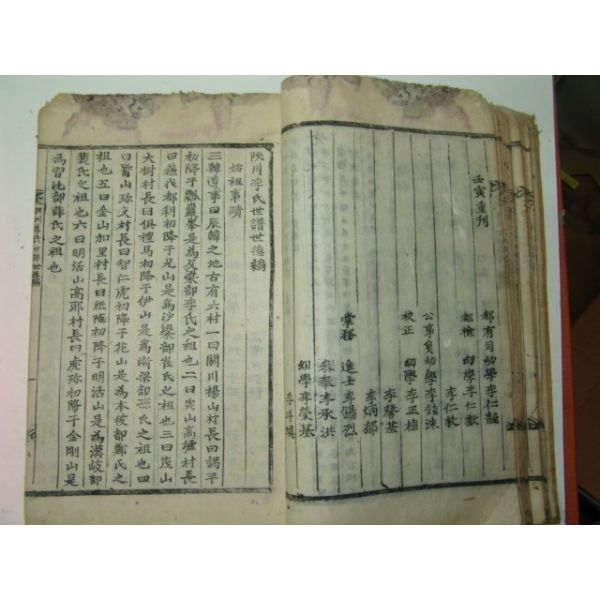 壬寅重刊
都有司幼學李仁龍
都檢 幼學李仁獻
李仁敎
公事員幼學李銘洙
校正 幼學李正植
李馨基
李炳郁
掌務 進士李錫烈
參奉李承洪
幼學李榮基
陜川李氏世譜世德編
始祖事蹟
三韓遺事曰辰韓之地古有六村一曰閼川楊山村長曰謁平
初降于瓢巖峯是爲及梁部李氏之祖也二曰突山高墟村長
曰蘇伐都利初降于兄山是爲沙梁部崔氏之祖也三曰茂山
大樹村長曰俱禮馬初降于伊山是爲漸梁部孫氏之祖也四
曰觜山珍支村長曰智伯虎初降于花山是爲本彼部鄭氏之
祖也五曰金山加里村長曰祗陁初降于明活山是爲漢岐部
裴氏之祖也六曰明活山高耶村長曰虎珍初降于金剛山是
爲習比部薛氏之祖也